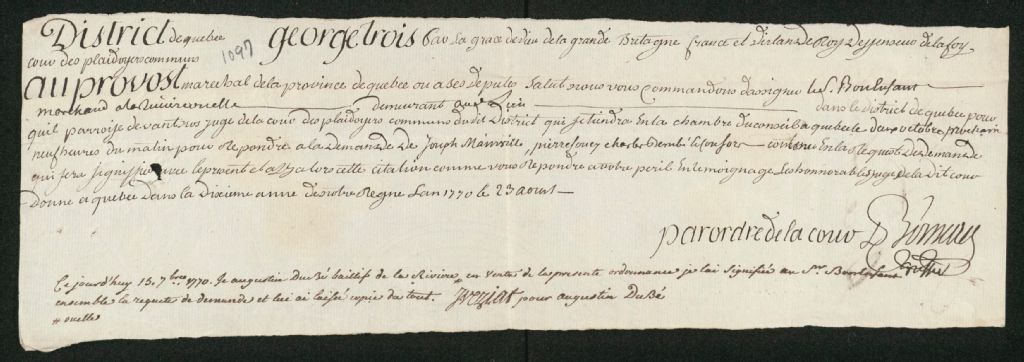 District de quebec george trois par la grace de dieu de la grande Bretagne france et d'irlande Roy Deffenseur de la foy
cour des plaidoyers communs 1097
au provost marechal de la province de quebec ou a ses deputés Salut nous vous Commandons d'assigner le S. Bonenfant
marchand a la Riviere ouelle demeurant au dans le district de quebec pour
qu'il paroisse devant nos juge de la cour des plaidoyers communs du dit District qui se tiendra En la chambre du conseil a quebec le deux octobre prochain
neuf heures du matin pour Repondre a la Demande De Joseph Mainville, pierre charles consors contenu En la Requete De demande
qui sera signiffié avec le present et a la citation comme vous Repondre a votre peril En temoignage Les honnorables juge de la Dit cour
Donne a quebec dans la Dixieme anné de notre Regne L'an 1770 le 23 aoust
par ordre de la cour
Ce jourd'huy 15. 7bre 1770. Je augustin Dubé baillif de la Riviere, en vertus de la presente ordonnance je lai signifiée au Sr. Bonenfant
ensemble la requete de demande et lui ai laissé copie du tout. pour augustin Dubé
ouelle